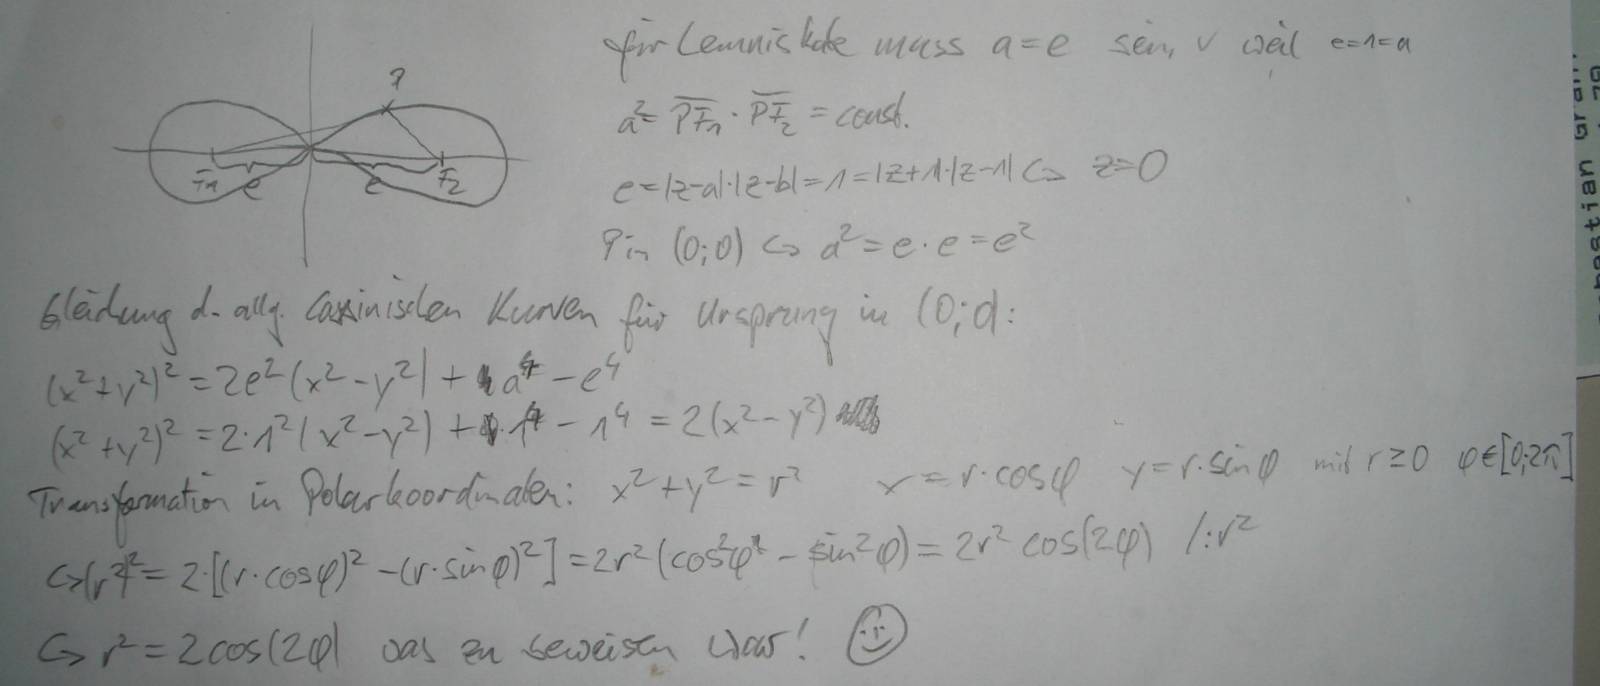 P
F₁ e e F₂
für Lemniskate muss a=e sein, v weil e=1=a
a² = PF₁ · PF₂ = const.
e=|z-a|·|z-b|=1=|z+1|·|z-1| ↪ z=0
P in (0;0) ↪ a² = e·e = e²
Gleichung d. allg. Cassinischen Kurven für Ursprung in (0;0):
(x²+y²)² = 2e²(x²-y²) + a⁴ - e⁴
(x²+y²)² = 2·1²(x²-y²) + 1⁴ - 1⁴ = 2(x²-y²)
Transformation in Polarkoordinaten: x²+y² = r² x=r·cosφ y=r·sinφ mit r≥0 φ∈[0;2π]
↪(r²)² = 2·[(r·cosφ)² -(r·sinφ)²] = 2r²(cos²φ - sin²φ) = 2r² cos(2φ) /:r²
↪ r² = 2cos(2φ) was zu beweisen war!